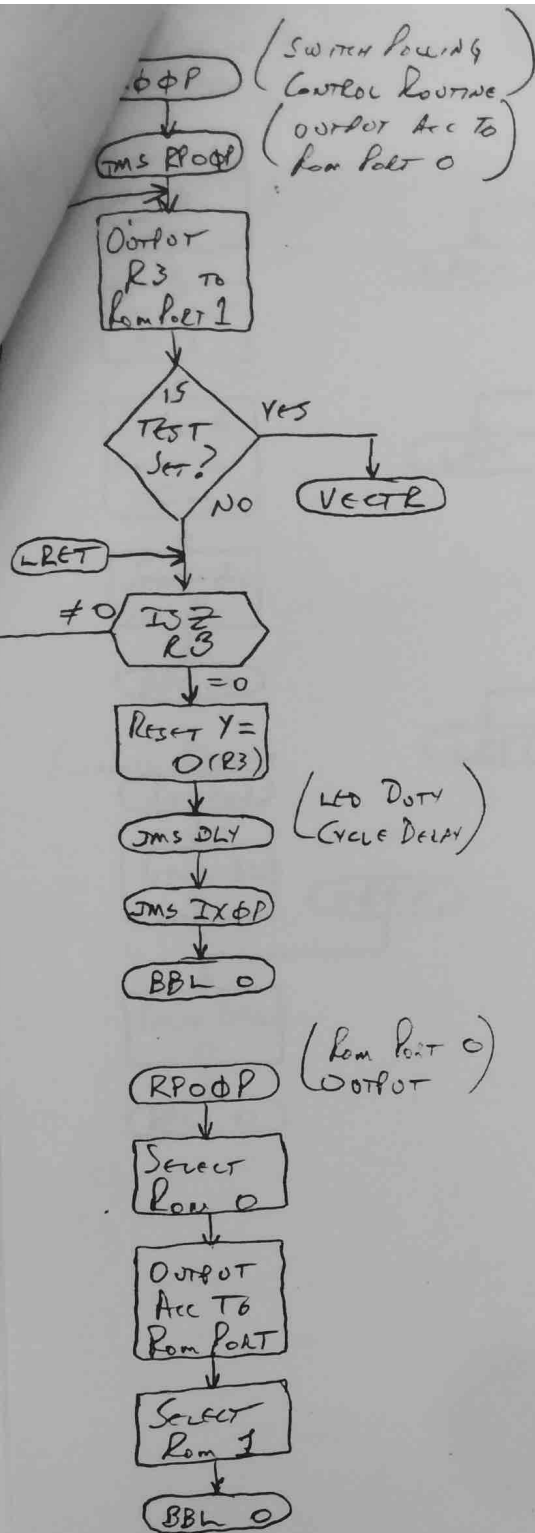 (SWITCH POLLING
CONTROL ROUTINE)
JMS RPOΦP
(OUTPUT ACC TO
ROM PORT 0)
OUTPUT
R3 TO
ROM PORT 1
IS
TEST
SET?
YES
VECTR
NO
LRET
≠0
ISZ
R3
=0
RESET Y=
0(R3)
JMS DLY
(LED DUTY
CYCLE DELAY)
JMS IXΦP
BBL 0
RPOΦP
(ROM PORT 0
OUTPUT)
SELECT
ROM 0
OUTPUT
ACC TO
ROM PORT
SELECT
ROM 1
BBL 0